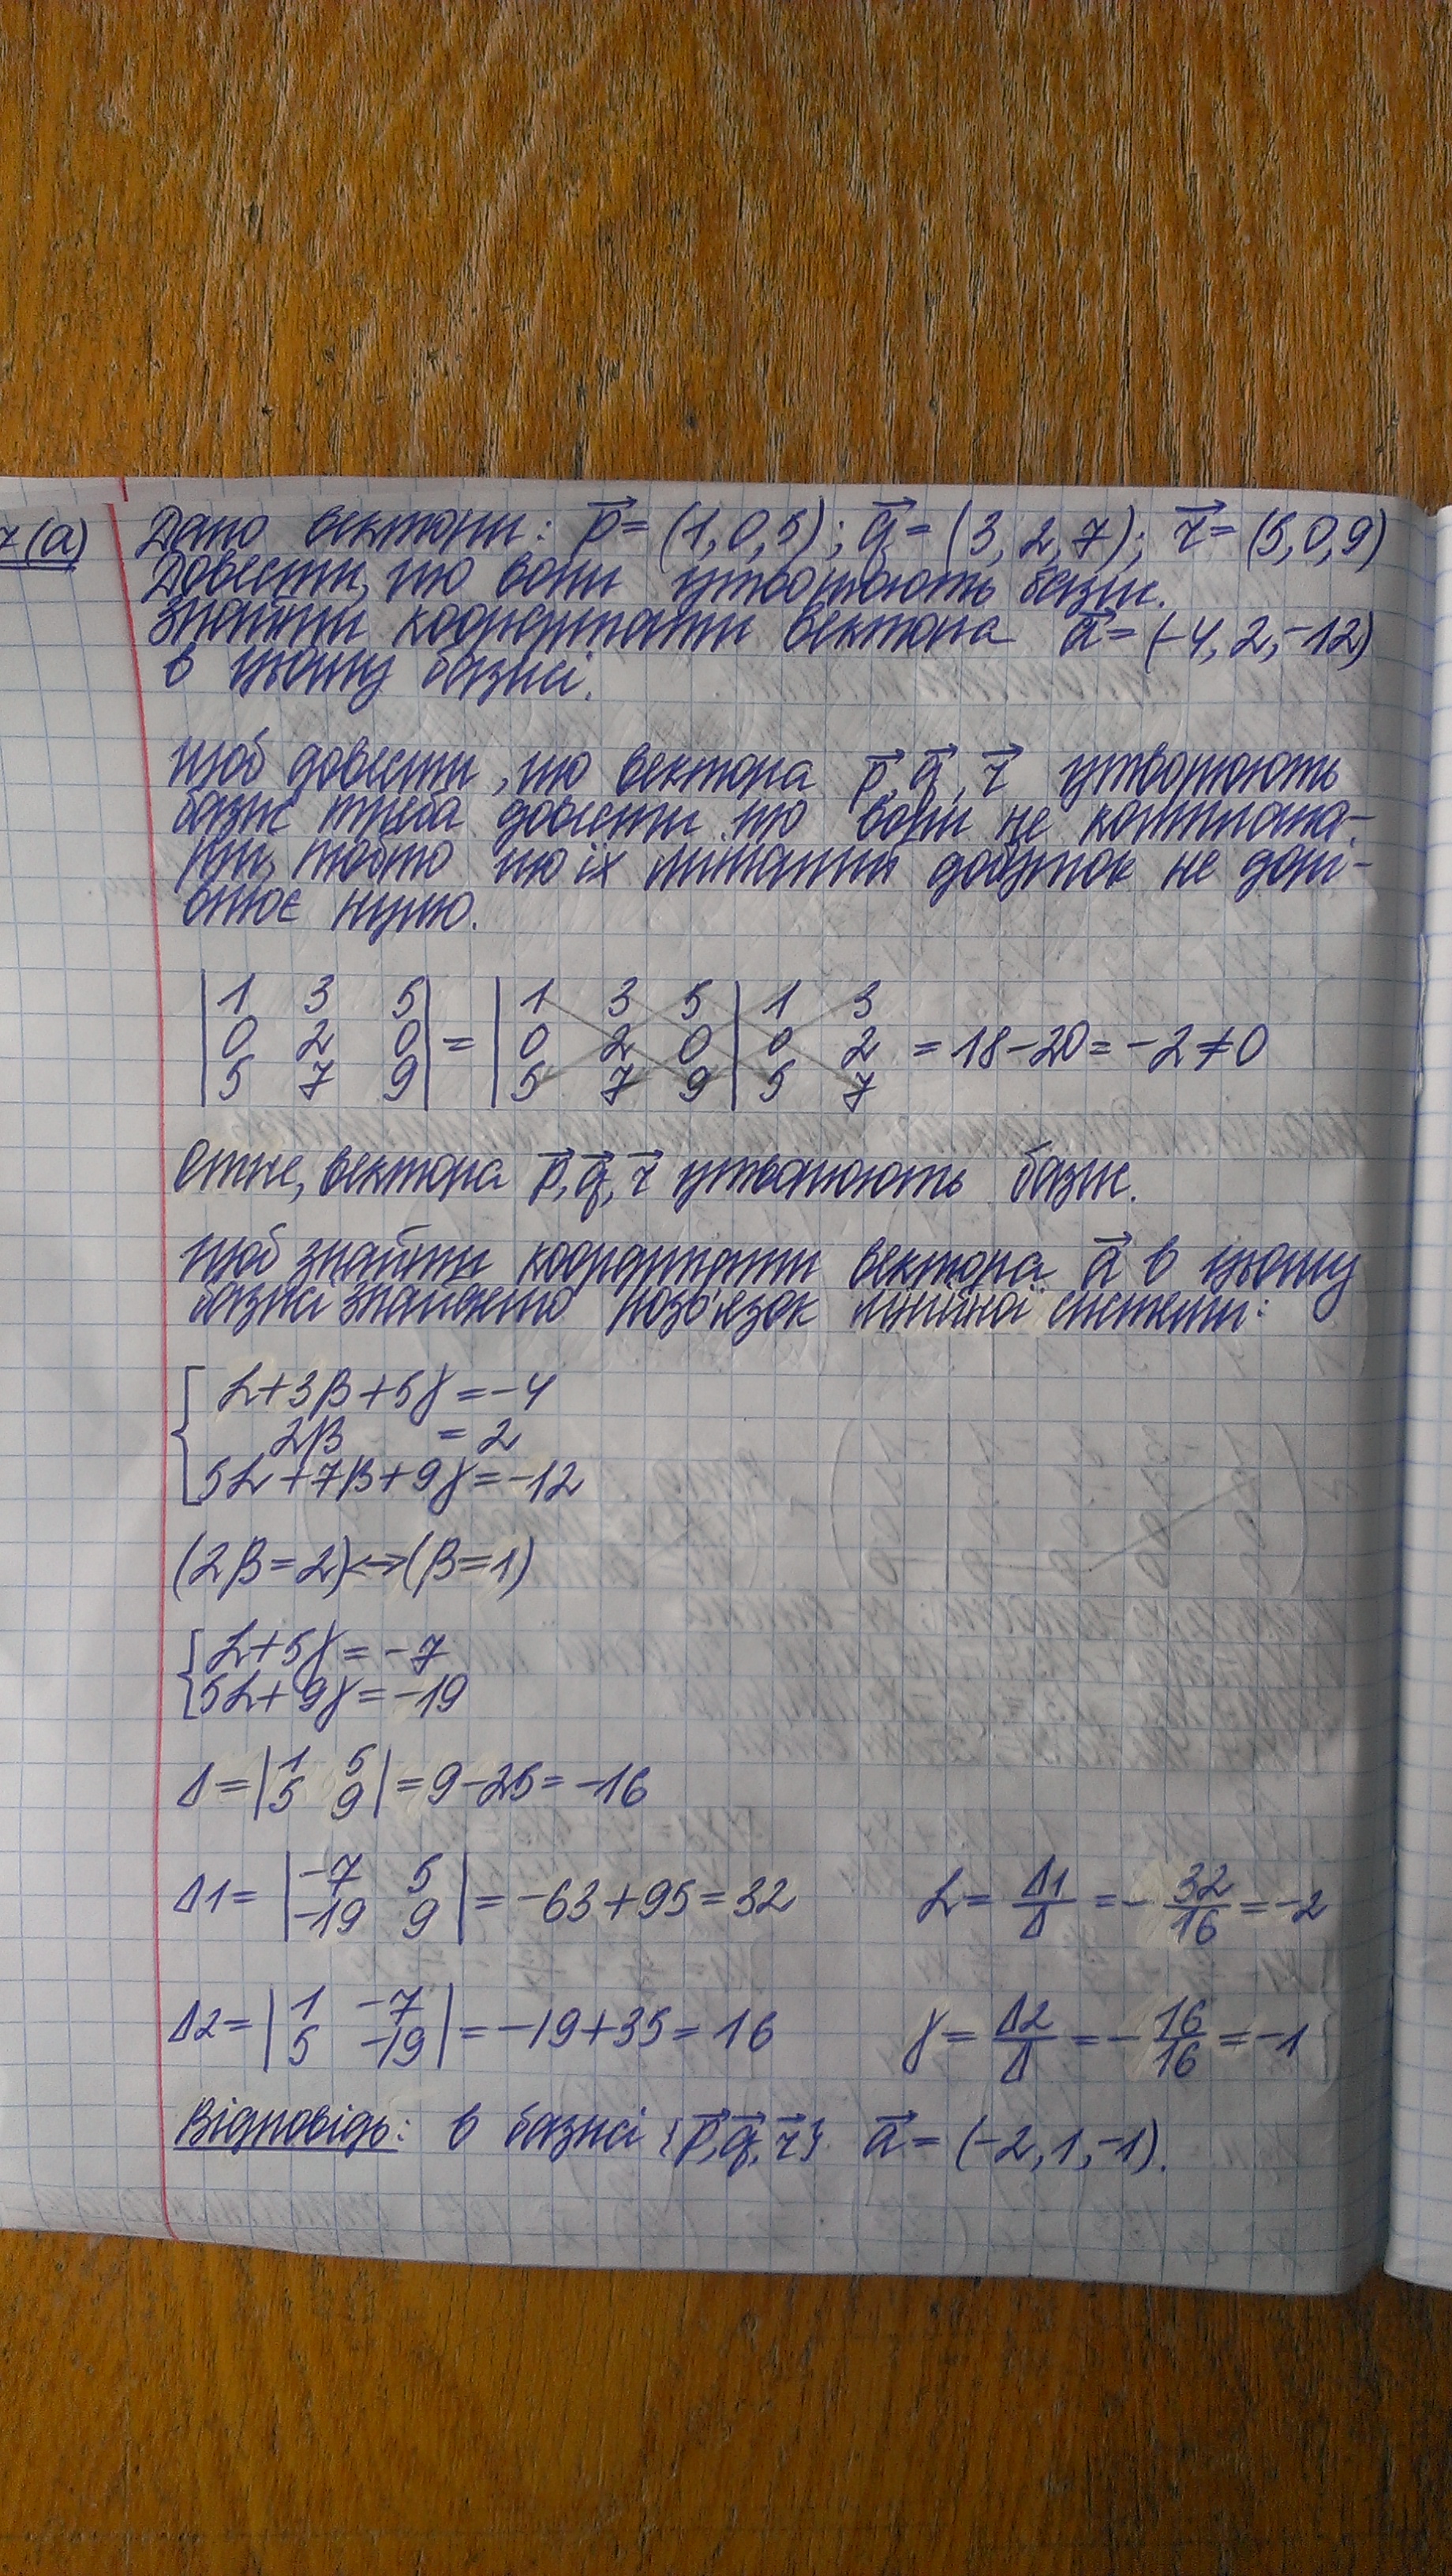 7(а) Дано вектори: p⃗ = (1,0,5); q⃗ = (3,2,7); r⃗ = (5,0,9)
Довести, що вони утворюють базис.
Знайти координати вектора a⃗ = (-4, 2, -12)
в цьому базисі.
Щоб довести, що вектора p⃗, q⃗, r⃗ утворюють
базис треба довести що вони не компляна-
рні, тобто що їх мішаний добуток не дорі-
внює нулю.
|1 3 5| = |1 3 5| 1 3
|0 2 0| |0 2 0| 0 2 = 18-20 = -2 ≠ 0
|5 7 9| |5 7 9| 5 7
Отже, вектора p⃗, q⃗, r⃗ утворюють базис.
Щоб знайти координати вектора a⃗ в цьому
базисі знайдемо розв'язок лінійної системи:
{ α+3β+5γ = -4
2β = 2
5α+7β+9γ = -12
(2β=2)<->(β=1)
{ α+5γ = -7
5α+9γ = -19
Δ = |1 5; 5 9| = 9-25 = -16
Δ1 = |-7 5; -19 9| = -63+95 = 32 α = Δ1/Δ = -32/16 = -2
Δ2 = |1 -7; 5 -19| = -19+35 = 16 γ = Δ2/Δ = -16/16 = -1
Відповідь: в базисі {p⃗, q⃗, r⃗} a⃗ = (-2, 1, -1).